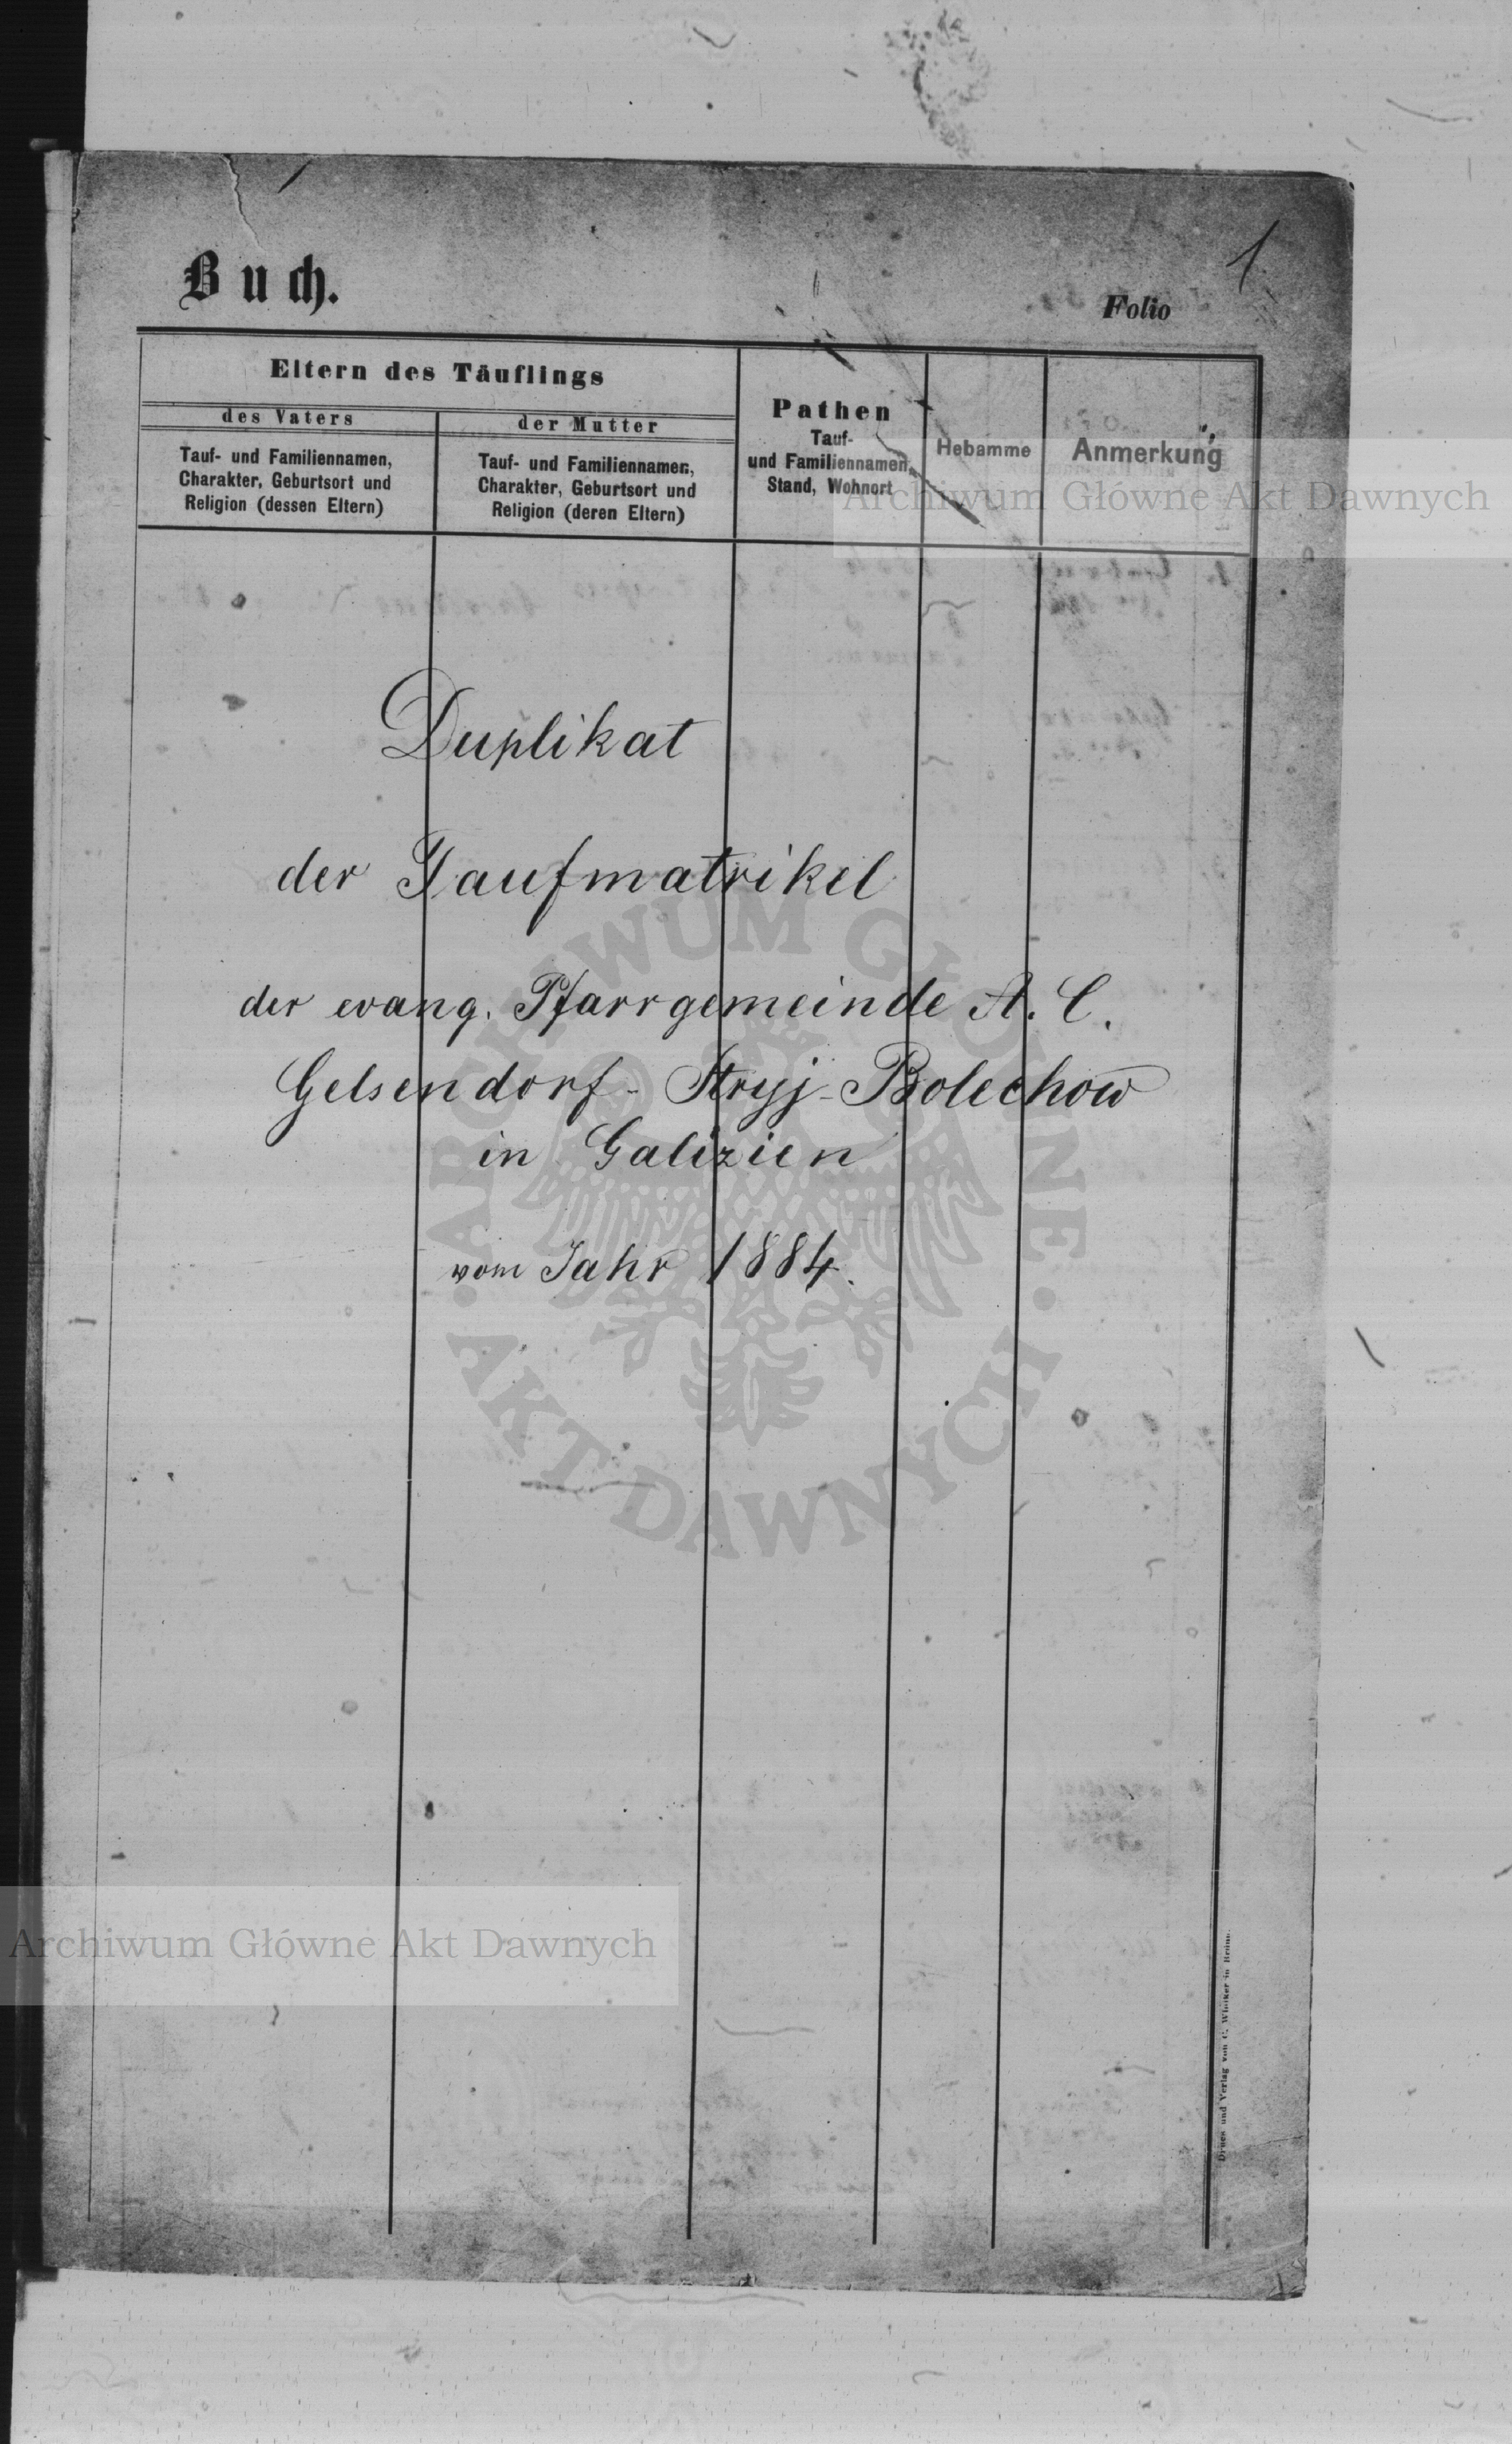 Buch.
Folio 1
Eltern des Täuflings
des Vaters
der Mutter
Tauf- und Familiennamen,
Charakter, Geburtsort und
Religion (dessen Eltern)
Tauf- und Familiennamen,
Charakter, Geburtsort und
Religion (deren Eltern)
Pathen
Tauf-
und Familiennamen,
Stand, Wohnort
Hebamme
Anmerkung
Archiwum Główne Akt Dawnych
Duplikat
der Taufmatrikel
der evang. Pfarrgemeinde A. C.
Gelsendorf-Stryj-Bolechow
in Galizien
vom Jahr 1884.
ARCHIWUM GŁÓWNE
AKT DAWNYCH
Archiwum Główne Akt Dawnych
Druck und Verlag von C. Winiker in Brünn.